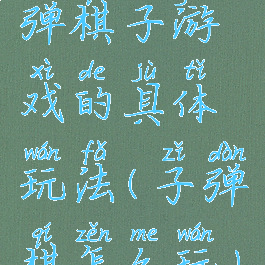 弹棋子游
xì de jù tǐ
戏的具体
wán fǎ zǐ dàn
玩法(子弹
qí zěn me wán
棋怎么玩)